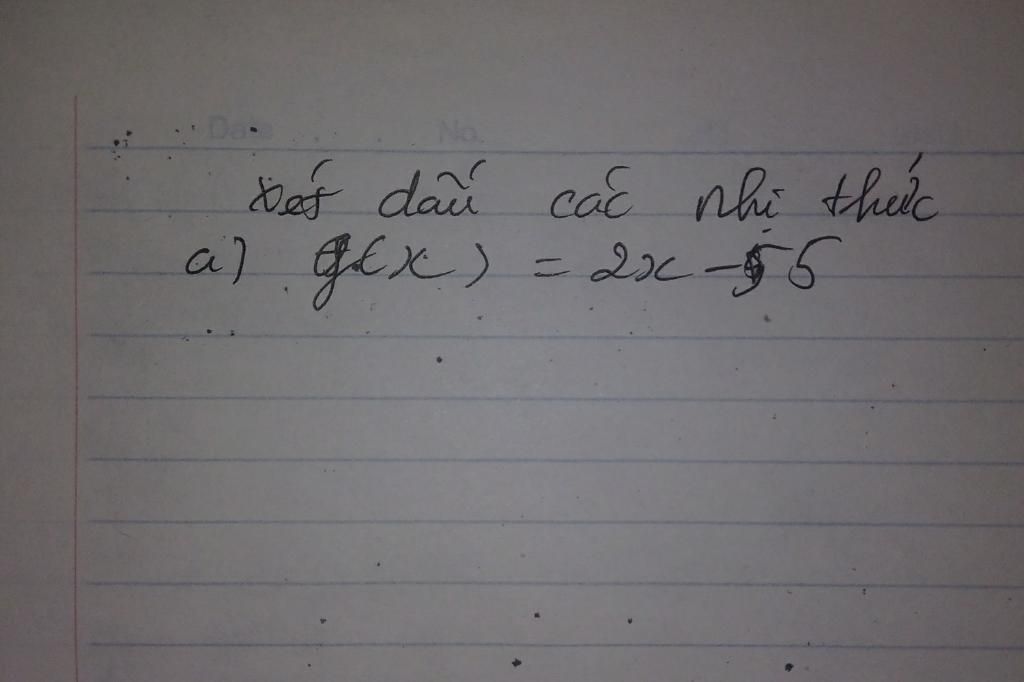 Date No.
xét dấu các nhị thức
a) g(x) = 2x - 5